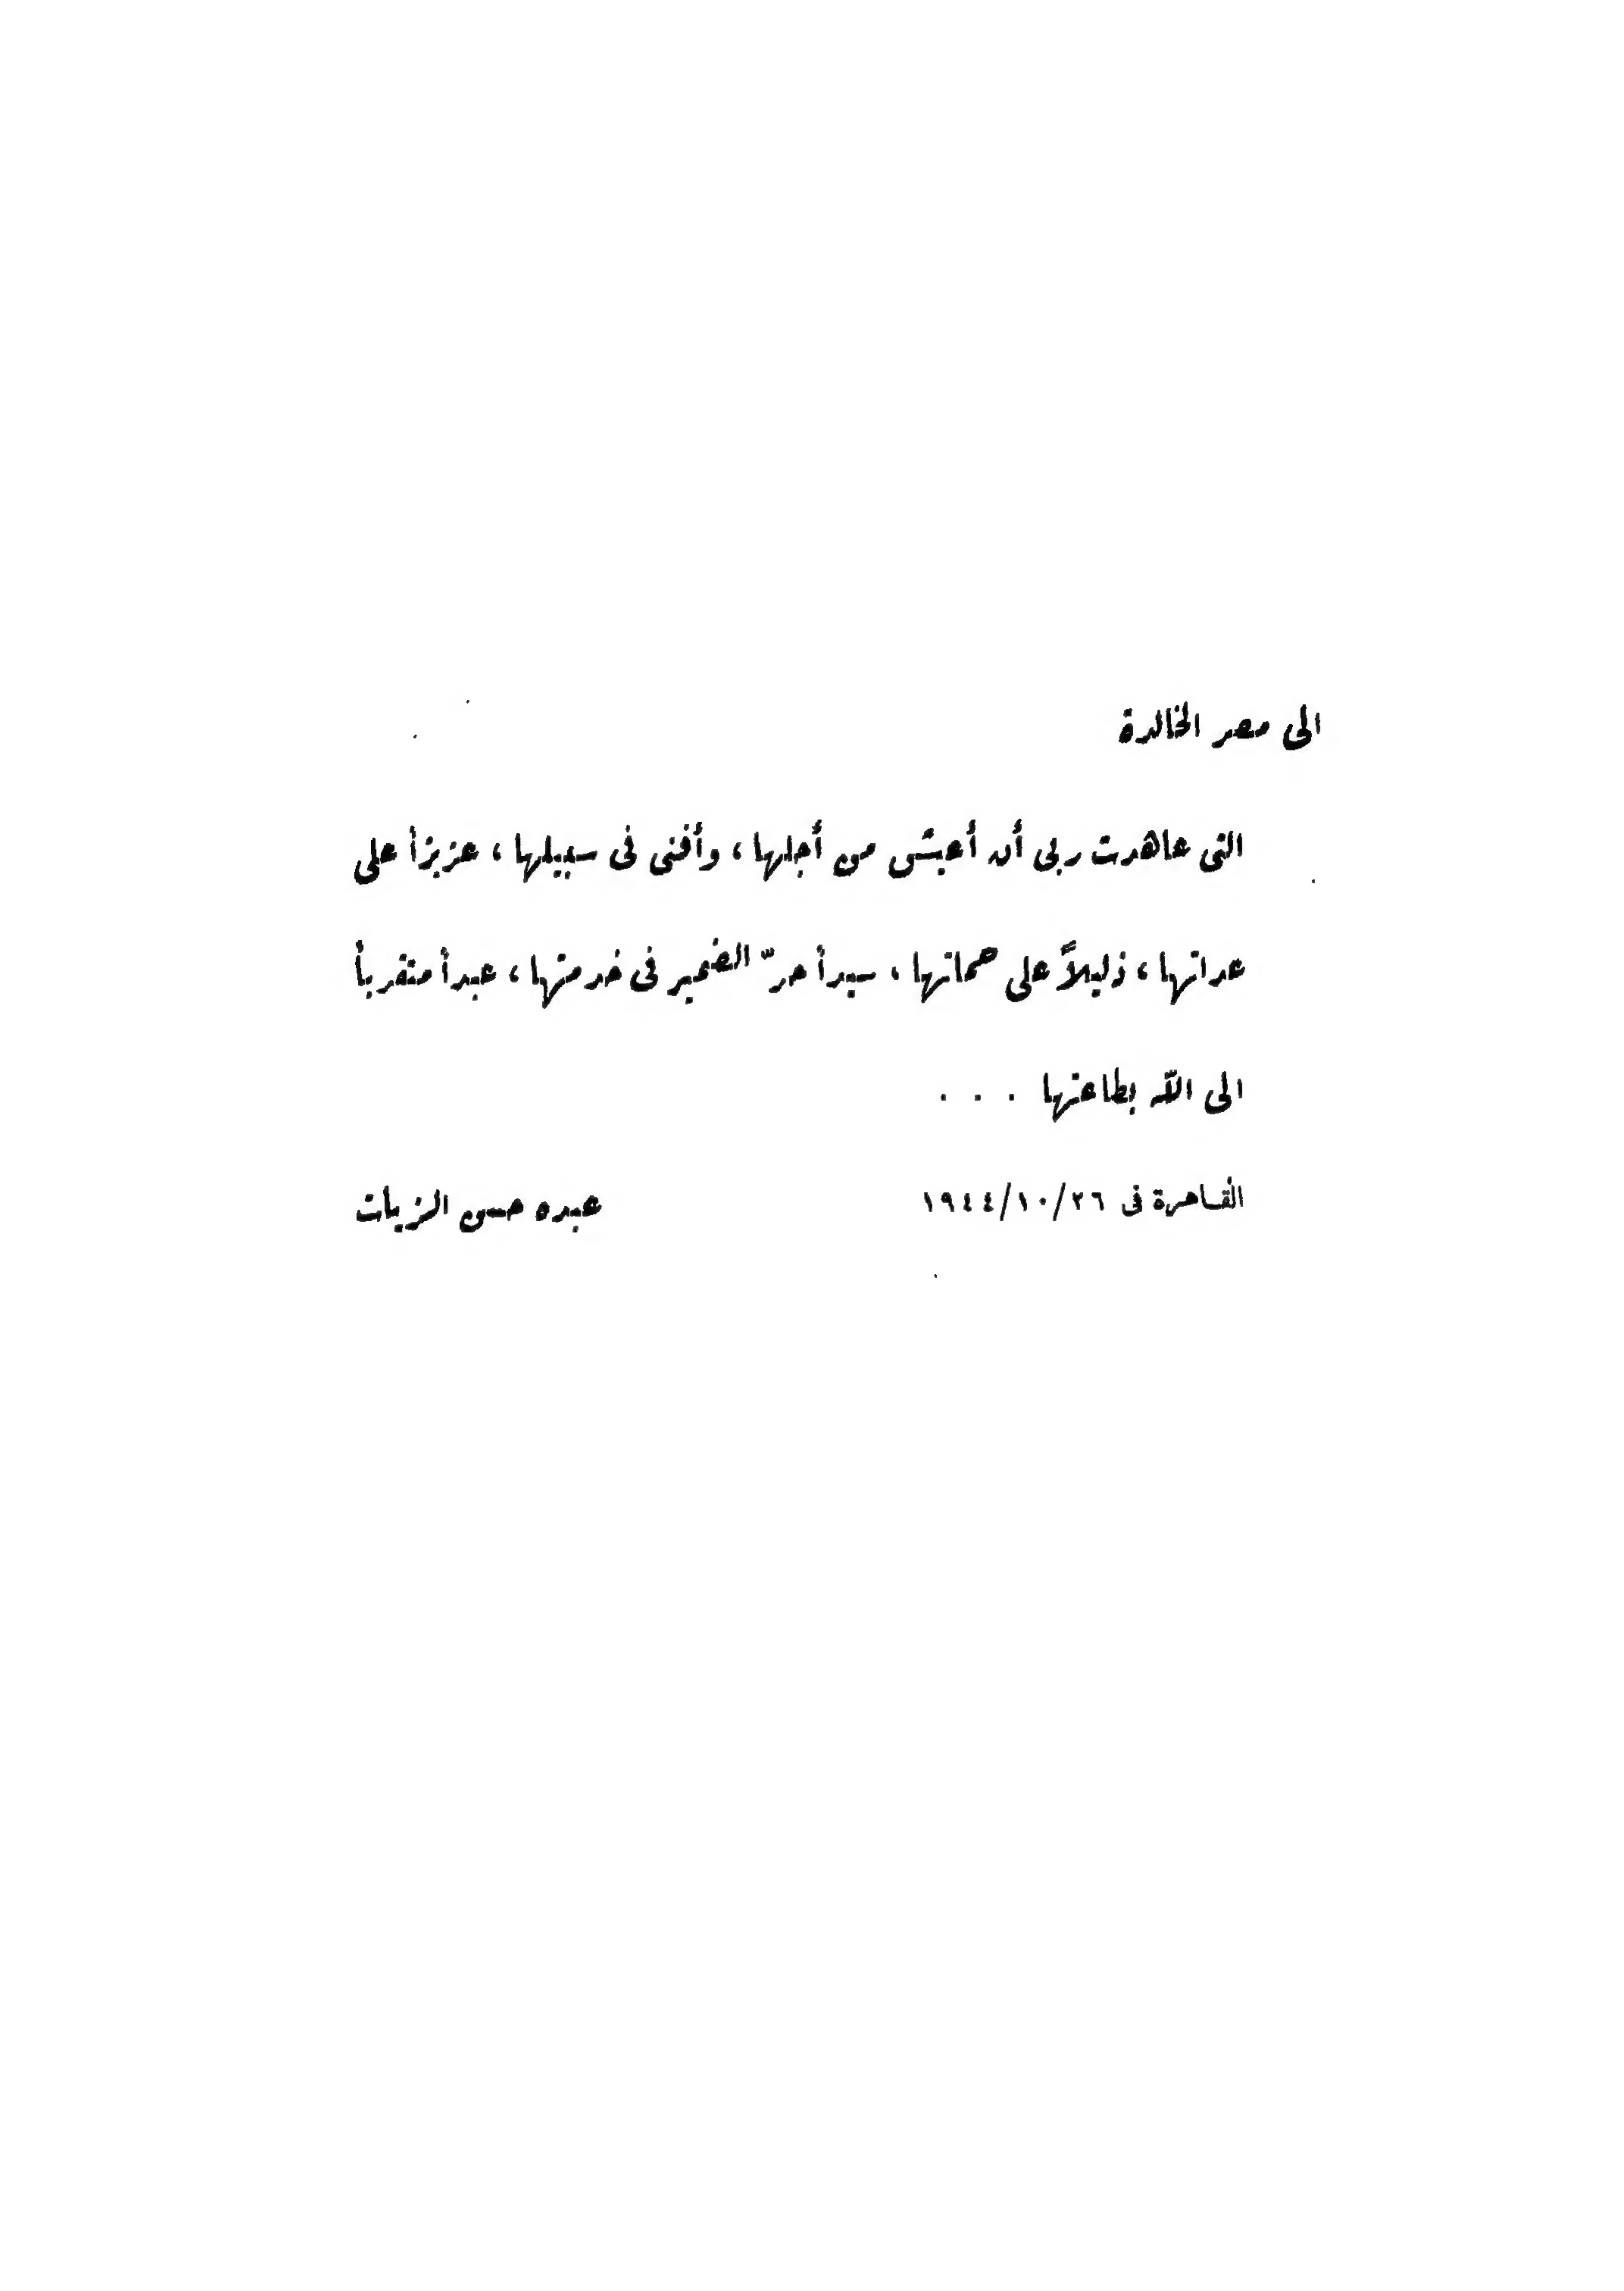 الى مصر الخالدة
التى عاهدت ربى أن أعيش من أجلها، وأفنى فى سبيلها، عزيزاً على
عداتها، ذليلاً على حماتها، سيداً حرّ الضمير فى خدمتها، عبداً متقرباً
الى اللّه بطاعتها . . .
القاهرة فى ٢٦/١٠/١٩٤٤ عبده حسن الزيات